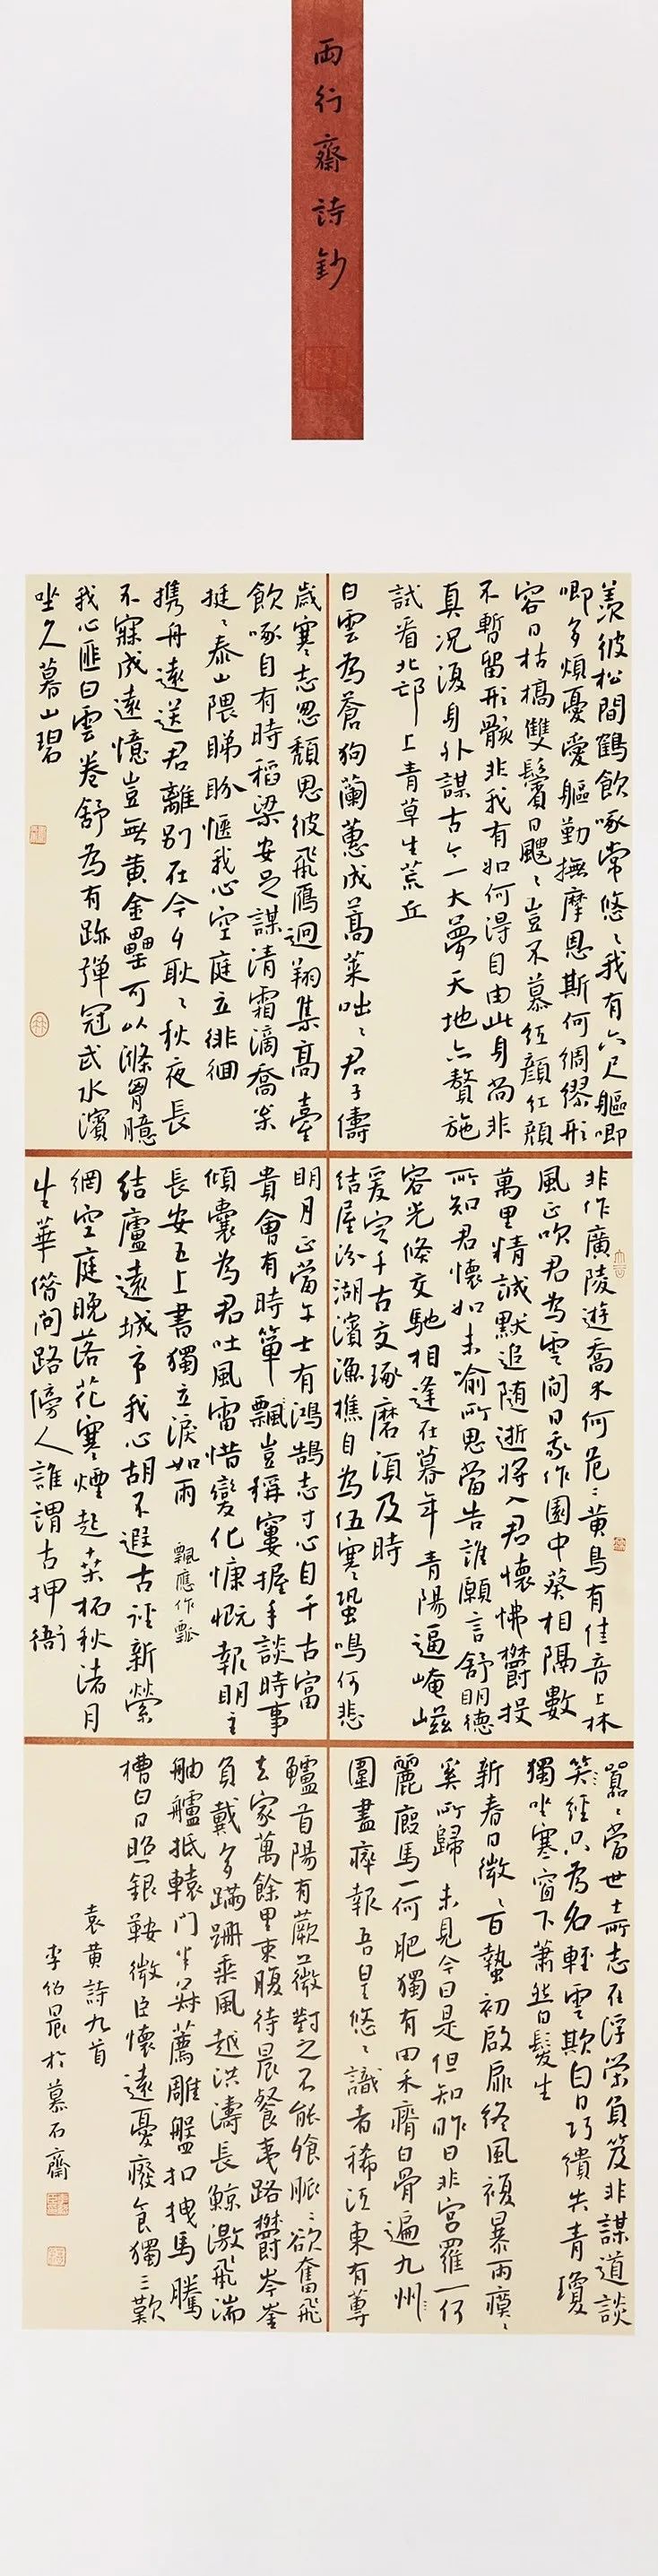 兩行齋詩鈔
羨彼松間鶴飲啄常悠〻我有六尺軀唧
唧多煩憂愛軀勤撫摩恩斯何綢繆形
容日枯槁雙鬢日颼〻豈不慕紅顏紅顏
不暫留形骸非我有如何得自由此身尚非
真况復身外謀古今一大夢天地亦贅疣
試看北邙上青草生荒丘
白雲為蒼狗蘭蕙成蒿萊咄〻君子儔
歲寒志忽頹思彼飛鴈迥翔集高臺
飲啄自有時稻粱安足謀清霜滴喬木
挺〻泰山隈睇盼愜我心空庭立徘徊
携舟遠送君離別在今夕耿〻秋夜長
不寐成遠憶豈無黃金罍可以滌胷臆
我心匪白雲卷舒為有跡彈冠武水濱
坐久暮山碧
非作廣陵遊喬木何危〻黃鳥有佳音上林
風正吹君為雲間日我作園中葵相隔數
萬里精誠默追随逝將入君懷怫鬱投
所知君懷如未喻所思當告誰願言舒明德
容光倏交馳相逢在暮年青陽逼崦嵫
爰定千古交琢磨須及時
結屋汾湖濱漁樵自為伍寒蛩鳴何悲
明月正當午士有鴻鵠志寸心自千古富
貴會有時簞飄豈稱窶握手談時事
傾囊為君吐風雷惜變化慷慨報明主
長安五上書獨立淚如雨 飄應作瓢
結廬遠城市我心胡不遐古逕新縈
網空庭晚落花寒煙起桑柘秋渚月
生華偕問路傍人誰謂古押衙
囂〻當世士所志在浮榮負笈非謀道談
笑〻經只為名輕雲欺白日巧繢失青瓊
獨坐寒窗下蕭然白髮生
新春日微〻百蟄初啟扉終風複暴雨瘼〻
奚所歸 未見今日是但知昨日非宮羅一何
麗廄馬一何肥獨有田禾瘠白骨遍九州
圍盡瘁報吾皇悠〻識者稀江東有蓴
鱸首陽有蕨薇對之不能飱脈〻欲奮飛
去家萬餘里束腹待晨餐夷路鬱岑崟
負戴多蹣跚乘風越洪濤長鯨激飛湍
舳艫抵轅門半菽薦雕盤扣拽馬騰
槽白日照銀鞍微臣懷遠憂廢食獨三歎
袁黃詩九首
李伯晨於慕石齋